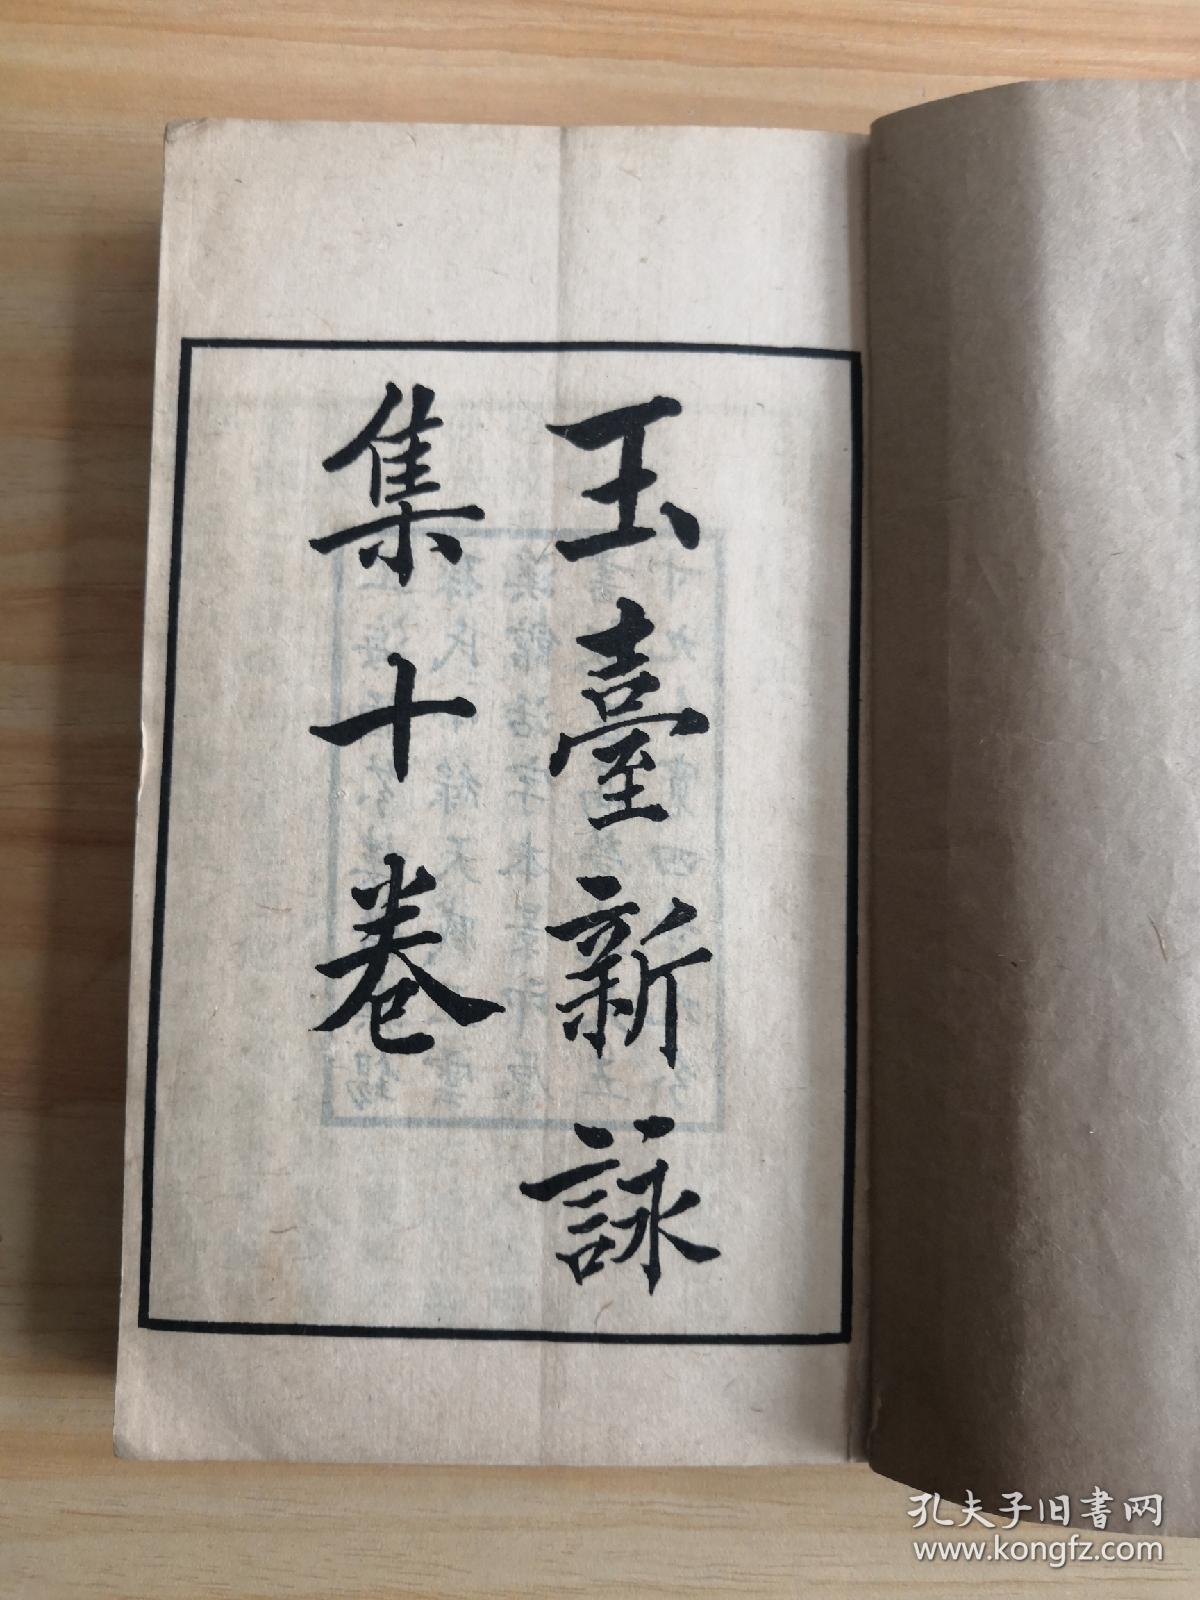 玉臺新詠
集十卷
孔夫子旧书网
www.kongfz.com